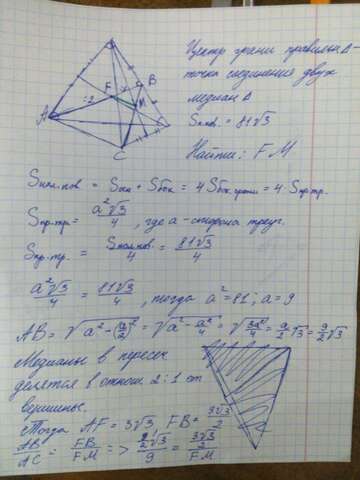 Центр грани правильн Δ-
точка соединения двух
медиан Δ
Sп.пов. = 81√3
Найти: FM
A
B
C
F
M
x
2
Sпол.пов = Sосн + Sбок = 4Sбок.грани = 4·Sпр.тр.
Sпр.тр = a²√3/4, где a - сторона треуг.
Sпр.тр. = Sпол.пов./4 = 81√3/4
a²√3/4 = 81√3/4, тогда a² = 81; a = 9
AB = √(a² - (a/2)²) = √(a² - a²/4) = √(3a²/4) = a/2 √3 = 9/2 √3
Медианы в пересеч.
делятся в отнош 2:1 от
вершины.
Тогда AF = 3√3, FB = 3√3/2
AB/AC = FB/FM => (9/2 √3)/9 = (3√3/2)/FM